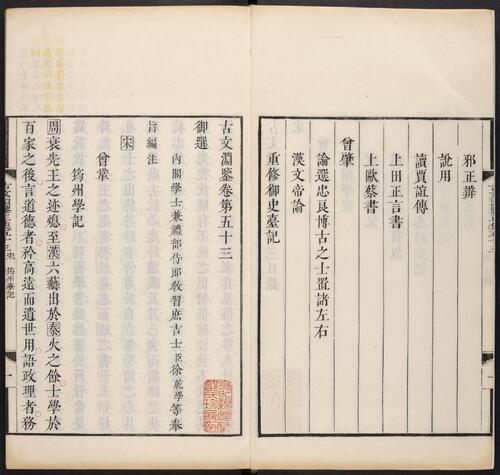 邪正辨
說用
讀賈誼傳
上田正言書
上歐蔡書
曾肇
論選忠良博古之士置諸左右
漢文帝論
重修御史臺記
古文淵鑒卷第五十三
御選
內閣學士兼禮部侍郎教習庶吉士臣徐乾學等奉
旨編注
宋
曾鞏
筠州學記
周衰先王之迹熄至漢六藝出於秦火之餘士學於
百家之後言道德者矜高遠而遺世用語政理者務